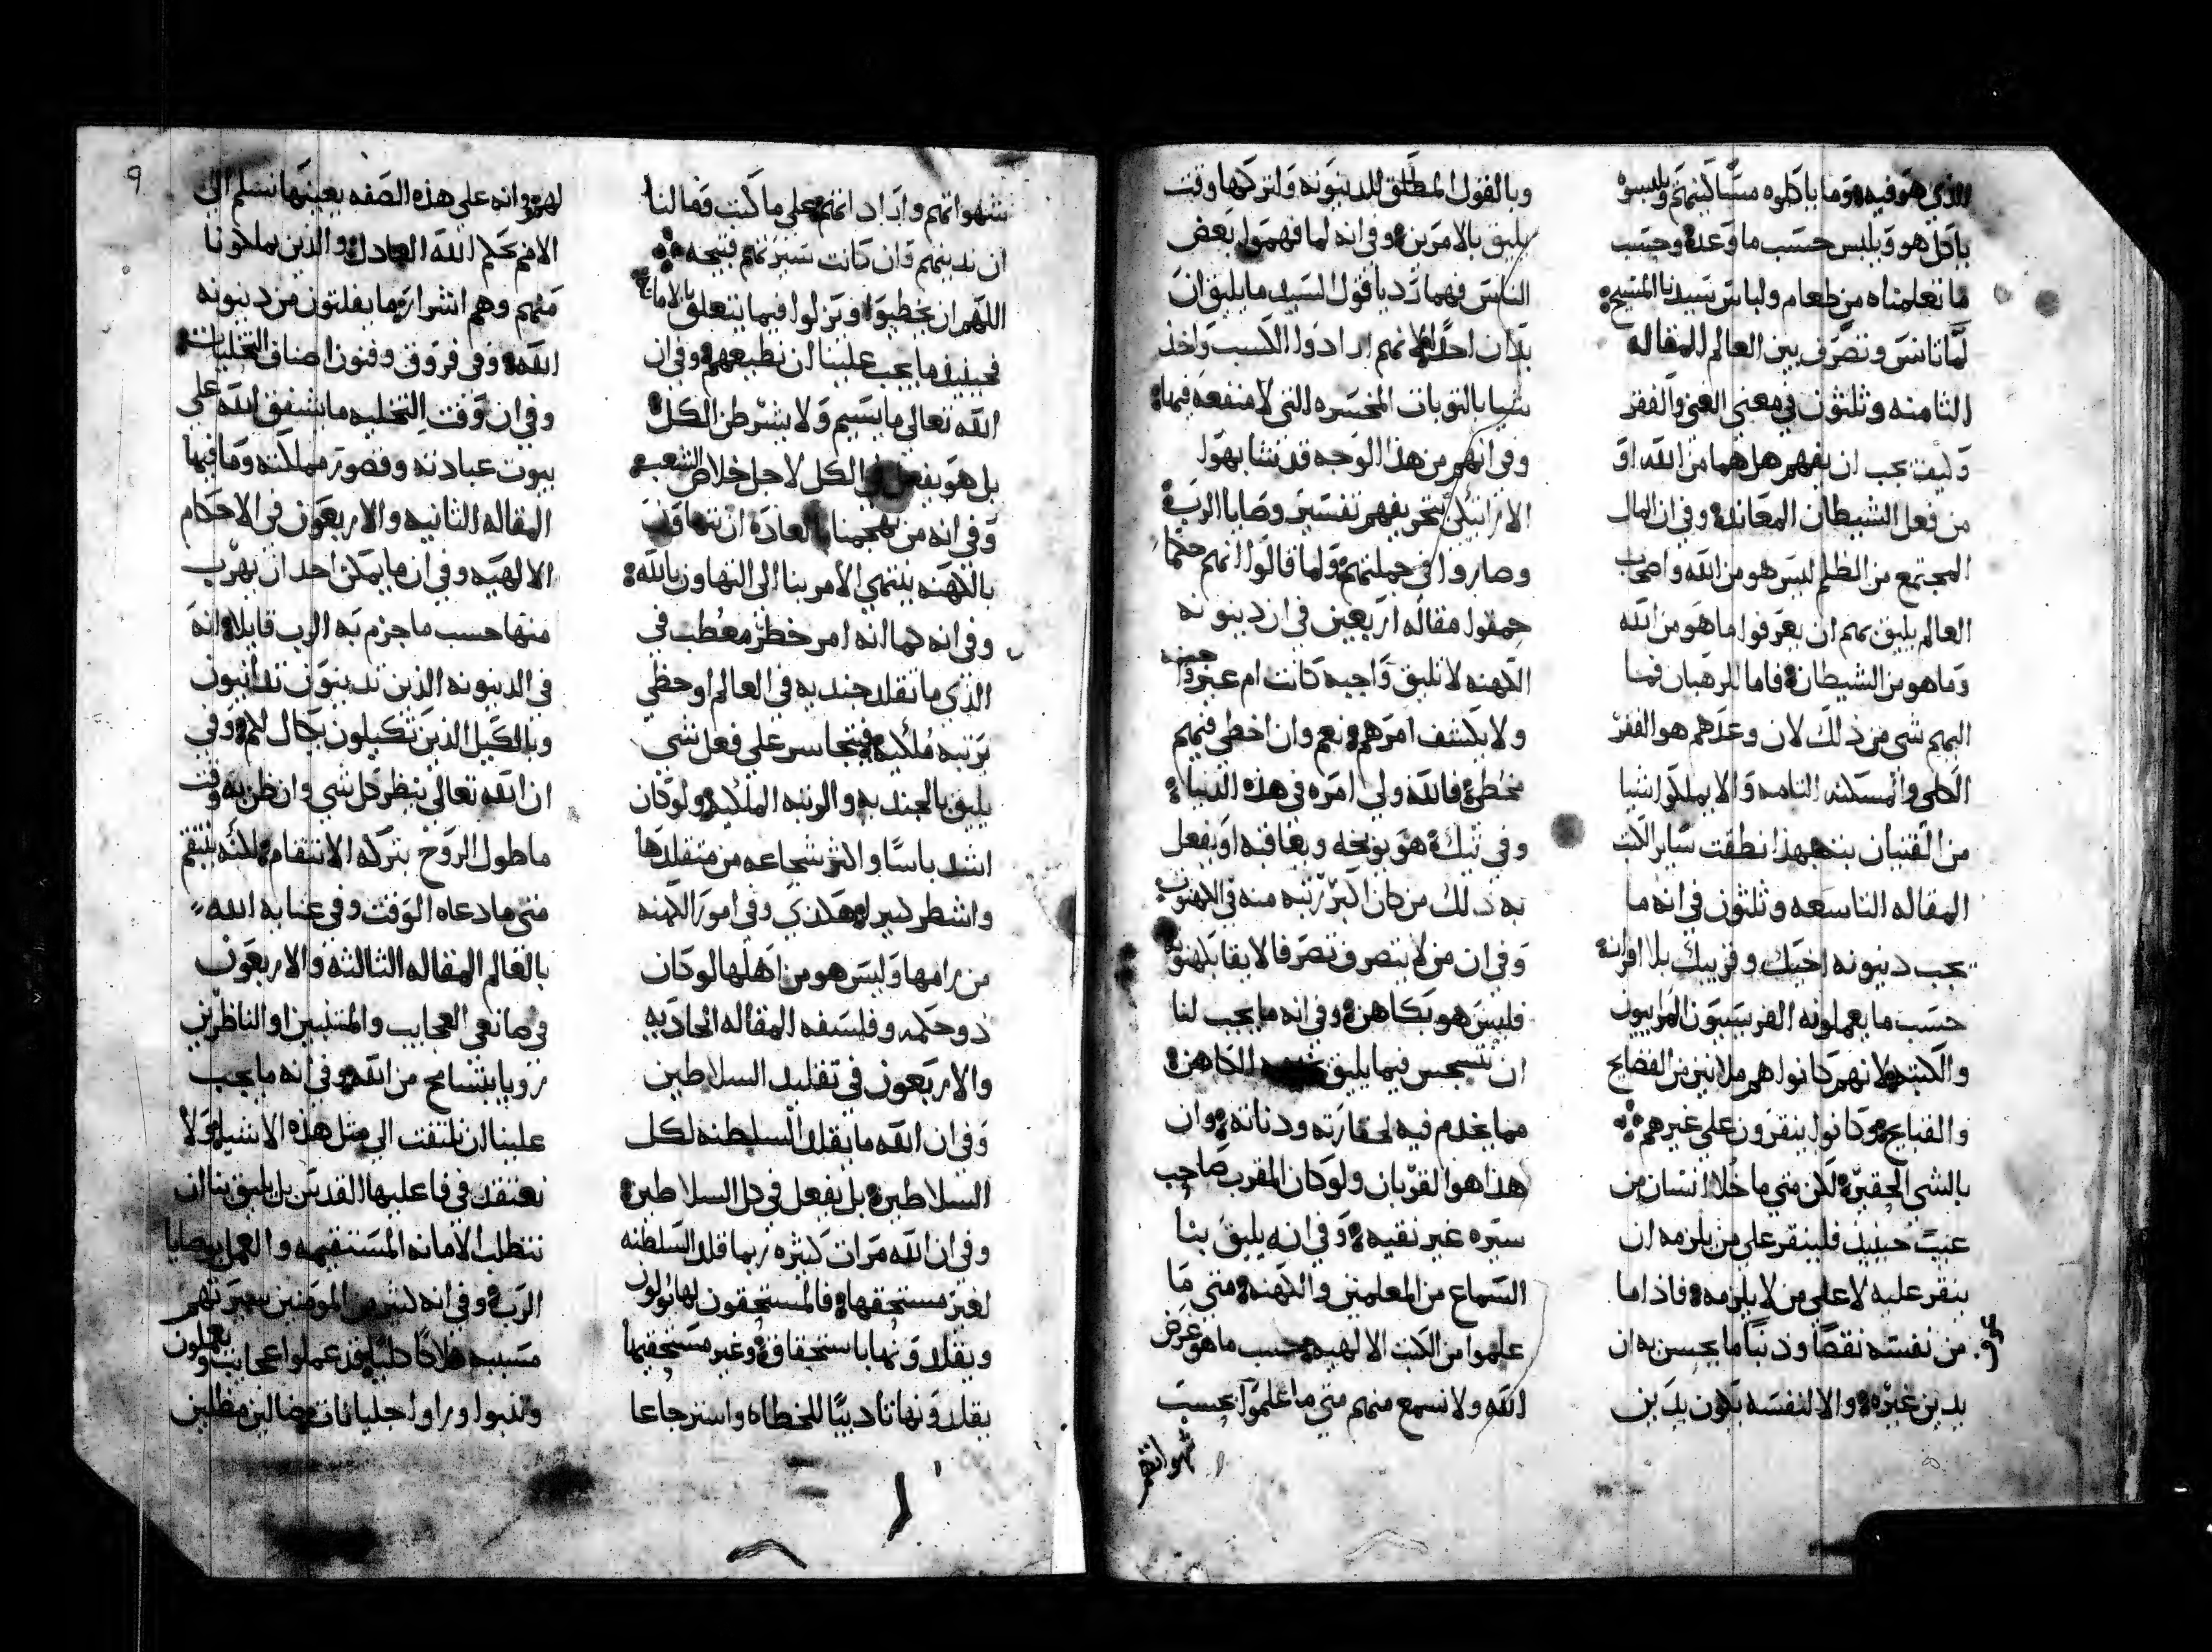 الذي هو فيه وما ياكلوه مساكينهم ويلبسوه
ياكل هو ويلبس حسب ما وعده وحسب
ما تعلمناه من طعام ولباس سيدنا المسيح
لما تانس وتصرف بين العالم المقاله
الثامنه وثلثون في معني الغني والفقر
وكيف يجب ان يفهم هل هما من الله او
من فعل الشيطان المعاند وفي ان المال
المجتمع من الظلم ليس هو من الله واصحاب
العالم يليق بهم ان يعرفوا ما هو من الله
وما هو من الشيطان فاما الرهبان فما
اليهم شي من ذلك لان وعدهم هو الفقر
الكلي والمسكنه التامه والا يملكوا شيا
من القنيان بته بهذا نطقت ساير الكتب
المقاله التاسعه وثلثون في انه ما
يجب دينونه اخيك وقريبك بلا افرانه
حسب ما يعملونه الفريسيون المراييون
والكتبه لانهم كانوا هم ملانين من الفضايح
والقبايح وكانوا ينقرون علي غيرهم
بالشي الحقير لكن متي ما خلا انسان من
عيب حينيذ فلينقر علي من يلزمه ان
ينقر عليه لا علي من لا يلزمه فاذا ما
من نفسه نقصا ودنبا ما يحسن به ان
يدين غيره والا لنفسه يكون يدين
وبالقول المطلق للدينونه ولتركها وقت
يليق بالامرين وفي انه لما فهموا بعض
الناس فهما رديا قول السيد ما يليق ان
يدان احد الا انهم ارادوا الكسب واخذ
شيا بالتوبات المخسره التي لا منفعه فيها
وفي انهم من هذا الوجه قد تشابهوا
الاراتيكي بتحريفهم تفسير وصايا الرب
وصاروا في جملتهم ولما قالوا انهم حكما
حمقوا مقاله اربعين في ان دينونه
الكهنه لا تليق واجبه كانت ام غير واجبه
ولا يكشف امرهم نعم وان اخطي فيهم
مخطي فالله ولي امره في هذه الدنيا
وفي تيك هو يوبخه ويعاقبه او يفعل
به ذلك من كان اكبر رتبه منه في الكهنوت
وفي ان من لا يتصرف تصرفا لايقا بكهنوته
فليس هو بكاهن وفي انه ما يجب لنا
ان نتجسس فيما يليق الكاهن
مما يخدم فيه لحقارته ودناته وان
هذا هو القربان ولو كان المقرب صاحب
سيره غير نقيه وفي انه يليق بنا
السماع من المعلمين والكهنه متي ما
علموا من الكتب الالهيه حسب ما هو غرض
الله ولا نسمع منهم متي ما علموا بحسب
شهواتهم
شهواتهم واراداتهم علي ما كتب وما لنا
ان ندينهم وان كانت سيرتهم قبيحه
اللهم ان يخطيوا ويزلوا فيما يتعلق بالامانه
فحينيذ ما يجب علينا ان نطيعهم وفي ان
الله تعالي ما يسيم ولا يشرطن الكل
بل هو يفعل في الكل لاجل خلاص الشعب
وفي انه من تهجمنا بالعاده ان نتهاون
بالكهنه ينتهي الامر بنا الي التهاون بالله
وفي انه كما انه امر خطر معطب في
الذي ما تقلد جنديه في العالم او حظي
برتبه ملكيه فيتجاسر علي فعل شي
يليق بالجنديه والرتبه الملكيه ولو كان
اشد باسا واكثر شجاعه من متقلدها
واشطر كبير هكذي وفي امور الكهنه
من رامها وليس هو من اهلها لو كان
ذو حكمه وفلسفه المقاله الحاديه
والاربعون في تقليد السلاطين
وفي ان الله ما يقلد السلطنه لكل
السلاطين بل يفعل في كل السلاطين
وفي ان الله مرات كثيره ربما قلد السلطنه
لغير مستحقها فالمستحقون لها يولون
ويقلدونها باستحقاق وغير مستحقيها
يقلدونها تاديبا للخطاه واسترجاعا
لهم وانه علي هذه الصفه بعينها نسلم الي
الامم بحكم الله العادل والذين يملكونا
منهم وهم اشرار ما يفلتون من دينونه
الله وفي فروق وفنون اصناف التخليات
وفي ان وقت التخليه ما يشفق الله علي
بيوت عبادته وقصور مملكته وما فيها
المقاله الثانيه والاربعون في الاحكام
الالهيه وفي ان ما يمكن احد ان يهرب
منها حسب ما جزم به الرب قايلا انه
في الدينونه الذين تدينون تدانون
وبالكيل الذين تكيلون يكال لكم وفي
ان الله تعالي ينظر كل شي وان ظن به وقت
ما طول الروح بتركه الانتقام لكنه ينتقم
متي ما دعاه الوقت وفي عنايه الله
بالعالم المقاله الثالثه والاربعون
في صانعي العجايب والمتنبين او الناظرين
رويا بتسامح من الله وفي انه ما يجب
علينا ان نلتفت الي مثل هذه الاشيا ولا
نعتقد في فاعليها القدس بل يليق بنا ان
نتطلب الامانه المستقيمه والعمل بوصايا
الرب وفي انه كثير من المومنين سيرتهم
مسيبه هلاكا كليا قد عملوا عجايب ويعملون
وتنبوا وراوا جليانات ضالين مظلين